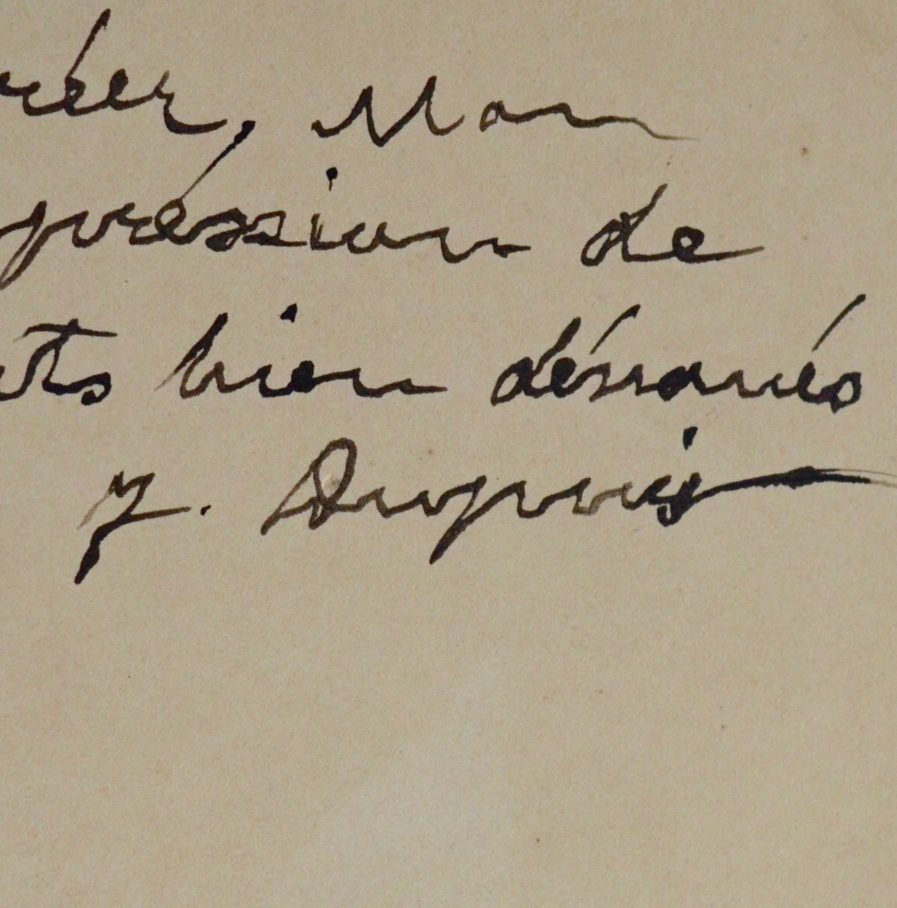 réer, Mon
préssion de
ts bien dévoués
J. Dupuis